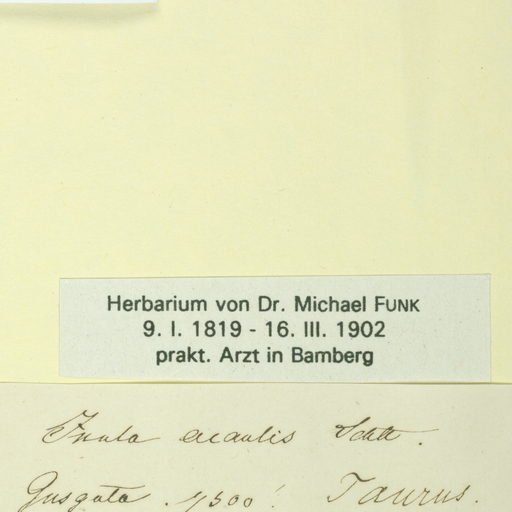 Herbarium von Dr. Michael FUNK
9. I. 1819 - 16. III. 1902
prakt. Arzt in Bamberg
Inula acaulis Schtt.
Gusguta. 7500'. Taurus.